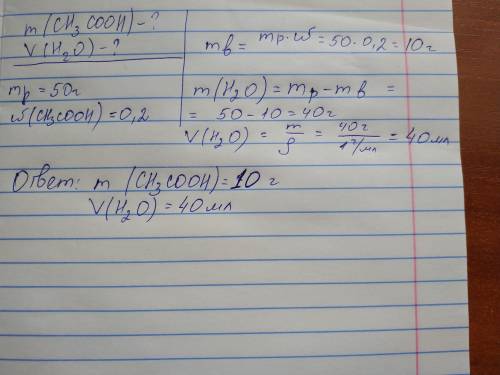 m (CH₃COOH) - ?
V(H₂O) - ?
mр = 50г
ω(CH₃COOH) = 0,2
mв = mр · ω = 50 · 0,2 = 10г
m(H₂O) = mр - mв =
= 50 - 10 = 40г
V(H₂O) = m/ρ = 40г/1г/мл = 40мл
Ответ: m (CH₃COOH) = 10 г
V(H₂O) = 40мл